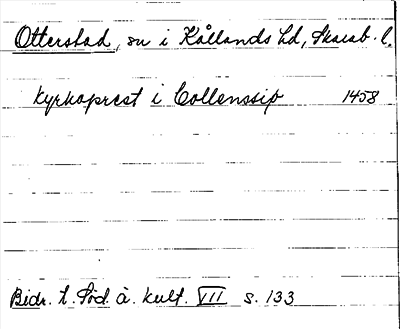 Otterstad, sn i Kållands hd, Skarab. l.
kyrkoprest i Collenssio 1458
Bidr. t. Söd. å. kult. VIII s. 133